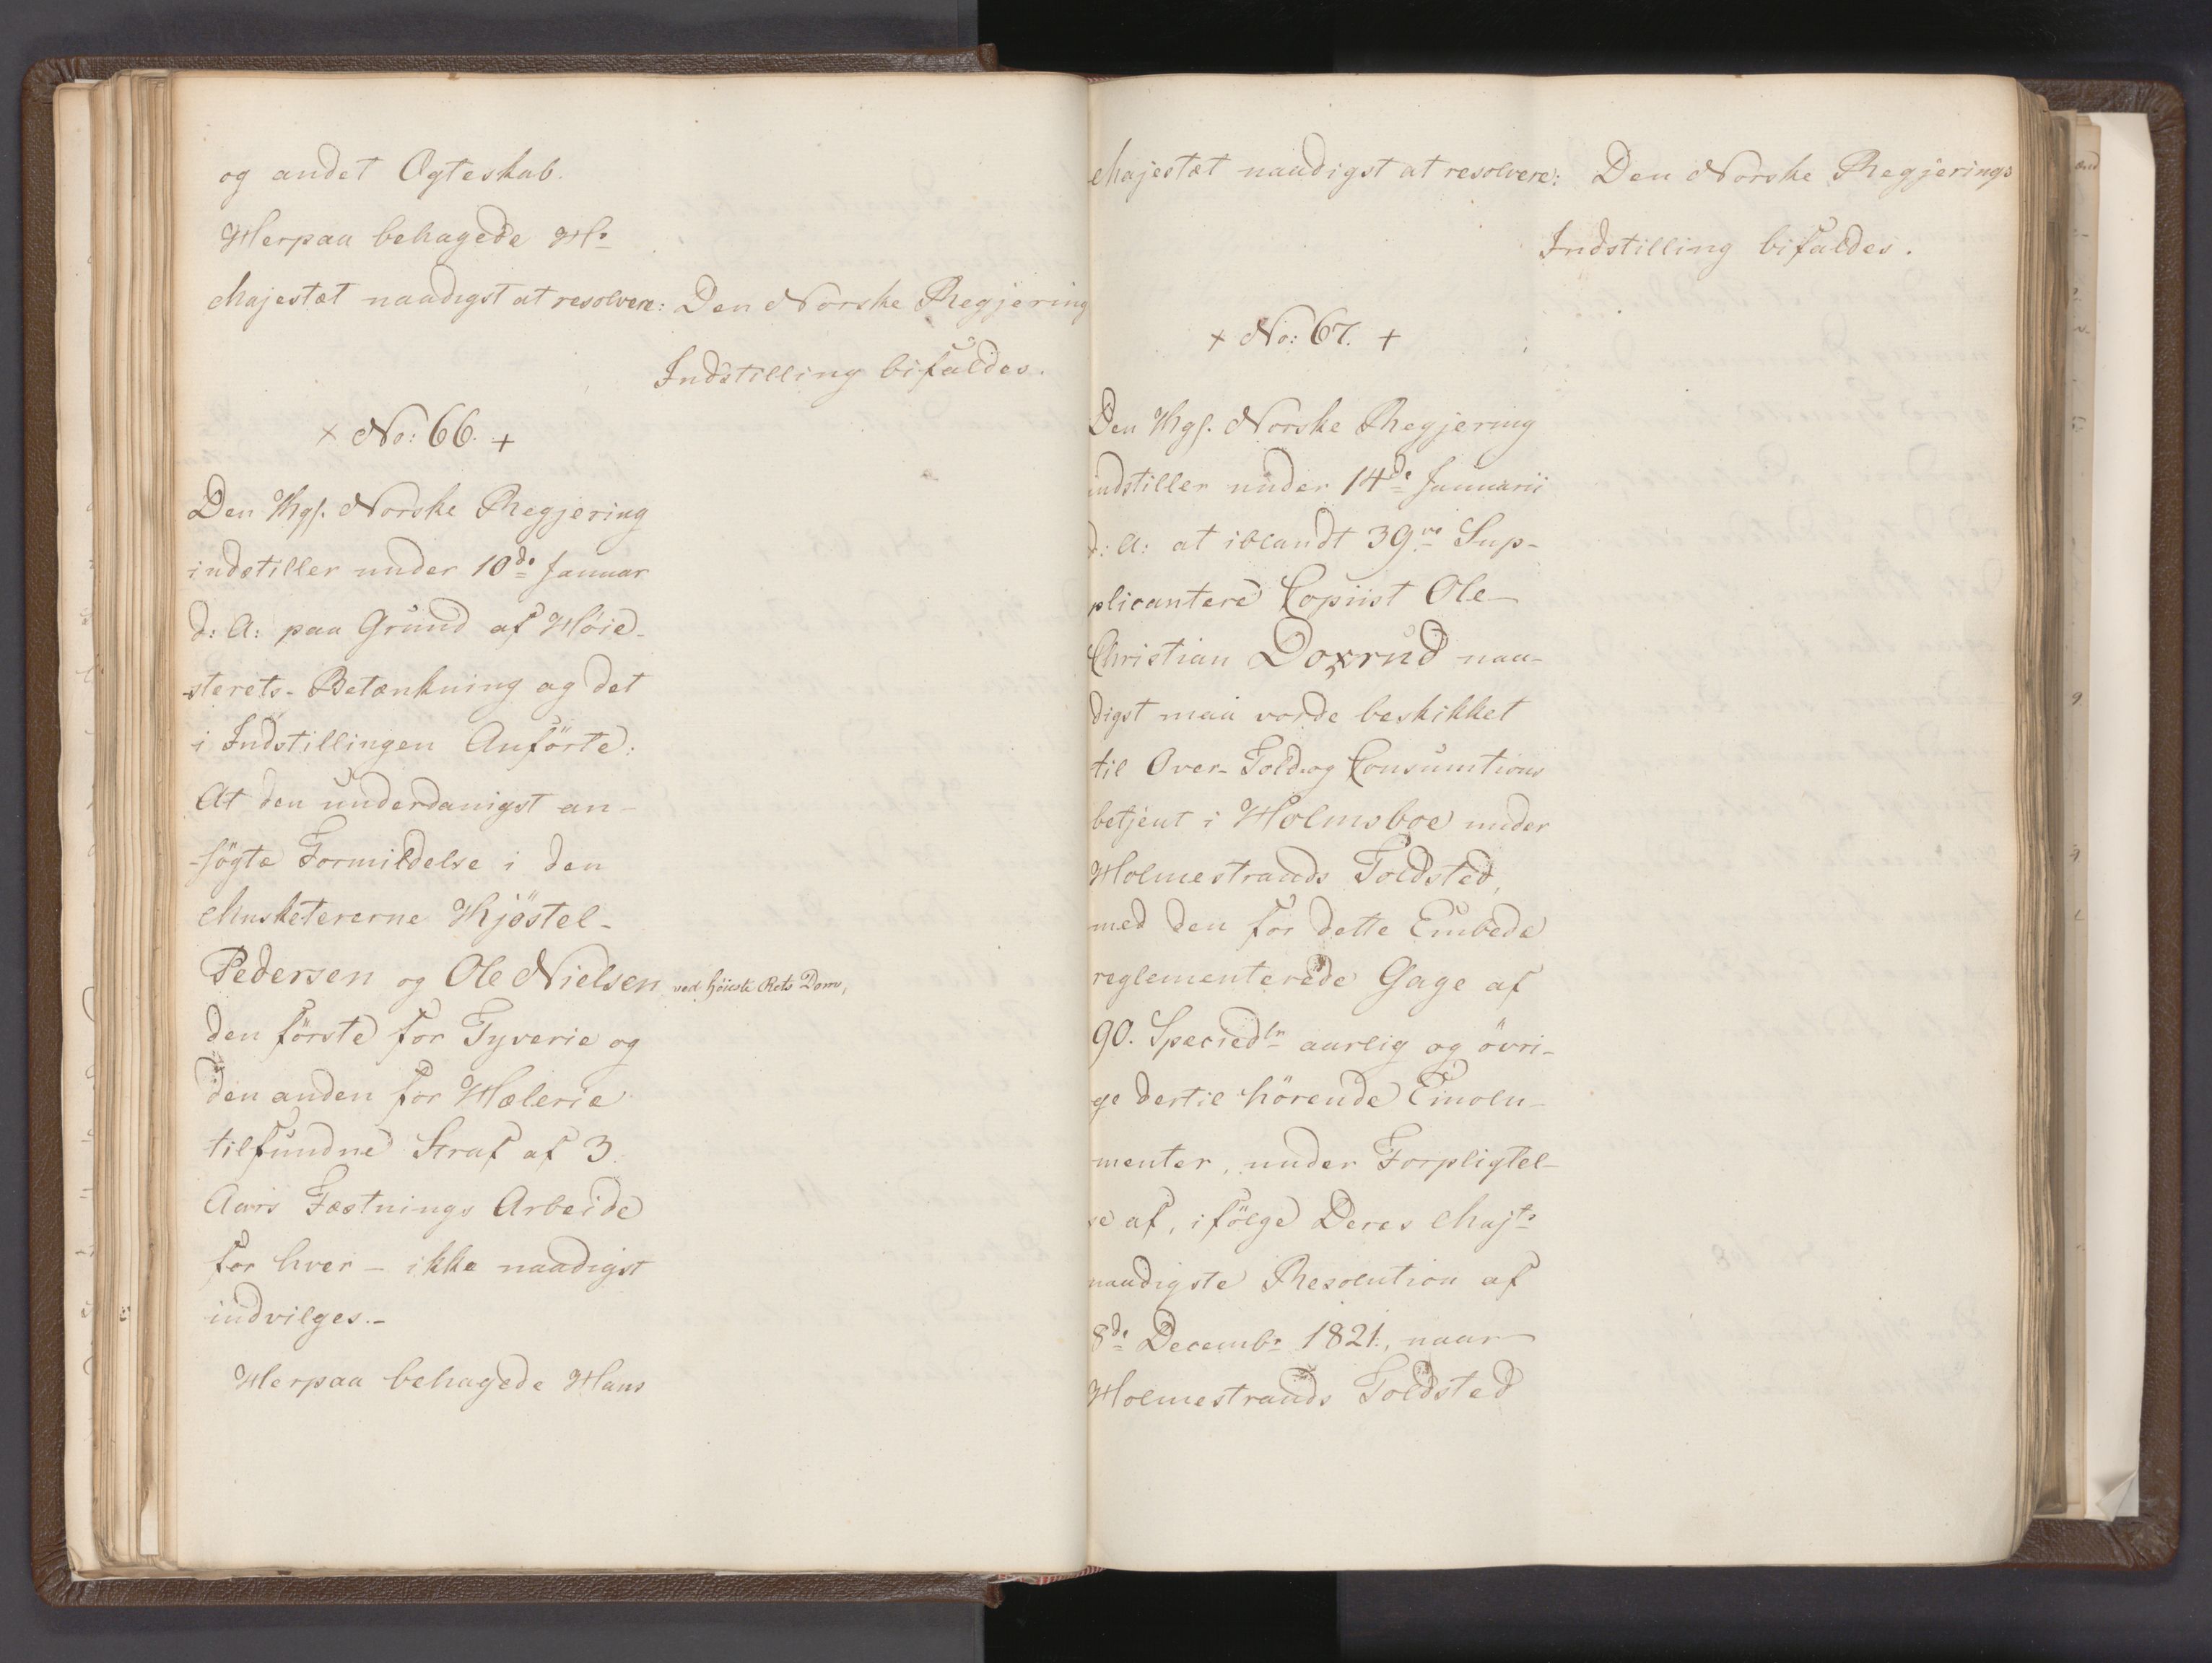 og andet Ægteskab.
Herpaa behagede Hs
Majestæt naadigst at resolvere: Den Norske Regjering
Indstilling bifaldes.
+ No: 66. +
Den Kgl. Norske Regjering
indstiller under 10de Januar
d: A: paa Grund af Høie-
-sterets-Betænkning og det
i Indstillingen Anförte:
At den underdanigst an-
-søgte Formildelse i den
Musketererne Kjöstel-
Pedersen og Ole Nielsen ved höieste Rets Dom,
den förste for Tyverie og
den anden for Hælerie
tilfundne Straf af 3
Aars Fæstnings Arbeide
for hver - ikke naadigst
indvilges.-
Herpaa behagede Hans
Majestæt naadigst at resolvere: Den Norske Regjerings
Indstilling bifaldes.
+ No: 67. +
Den Kgl. Norske Regjering
indstiller under 14de Januarii
d: A: at iblandt 39ve Sup-
plicantere Copiist Ole
Christian Doxrud naa-
digst maa vorde beskikket
til Over-Told-og Consumtions
betjent i Holmsboe under
Holmestrands Toldsted,
med den for dette Embede
reglementerede Gage af
90. Speciedlr aarlig og övri-
ge dertil hörende Emolu-
menter, under Forpligtel-
se af, i fölge Deres Majts
naadigste Resolution af
8de Decembr 1821., naar
Holmestrands Toldsted